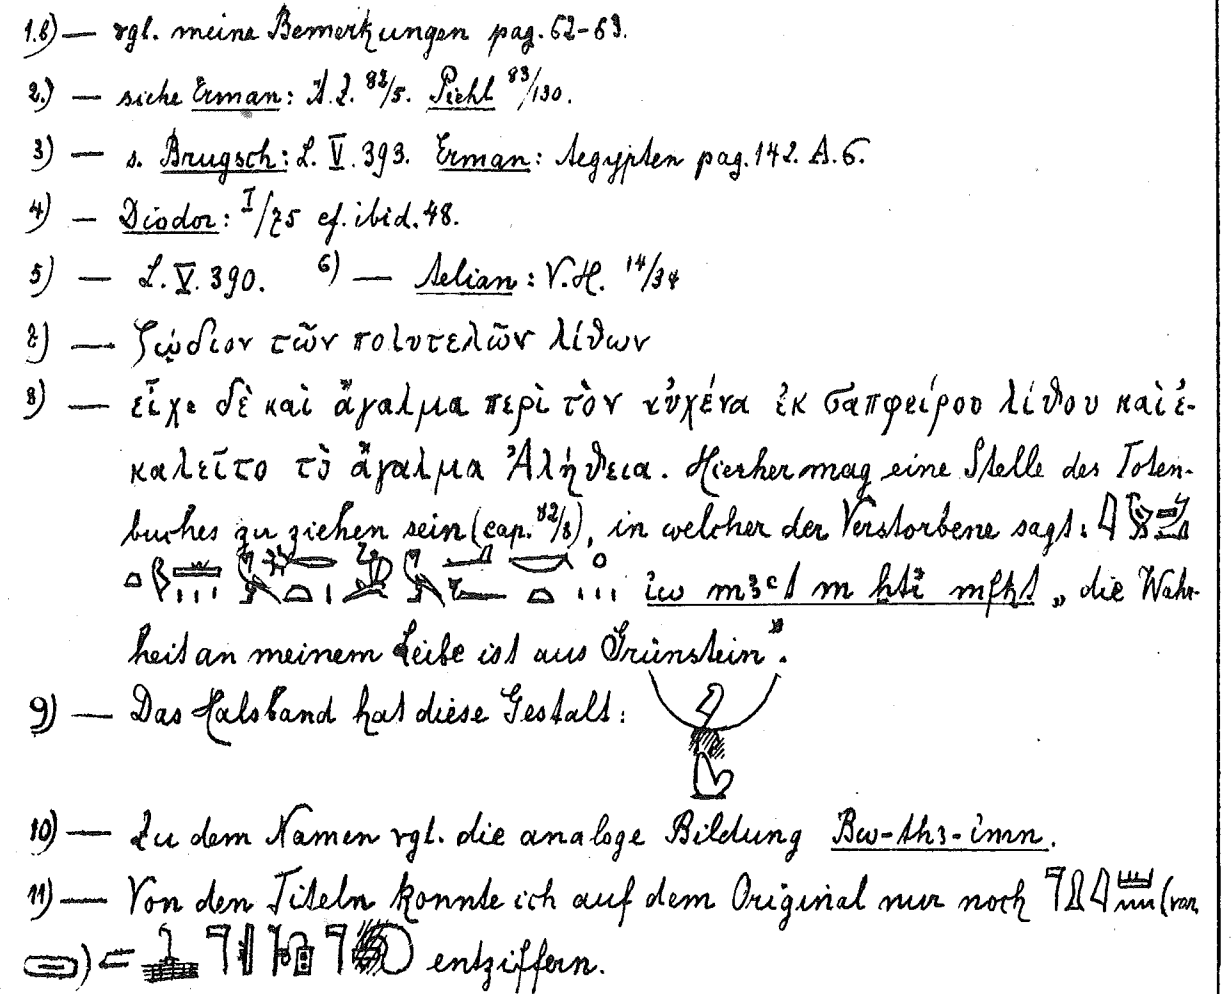 1.b) — vgl. meine Bemerkungen pag. 62-63.
2.) — siehe Erman: A.Z. 82/5. Piehl 83/130.
3) — s. Brugsch: L. V. 393. Erman: Aegypten pag. 142. A. 6.
4) — Diodor: I/75 cf. ibid. 48.
5) — L. V. 390. 6) — Aelian: V.H. 14/34
7) — ζῴδιον τῶν πολυτελῶν λίθων
8) — εἶχε δὲ καὶ ἄγαλμα περὶ τὸν αὐχένα ἐκ σαπφείρου λίθου καὶ ἐ-
καλεῖτο τὸ ἄγαλμα Ἀλήθεια. Hierher mag eine Stelle des Toten-
buches zu ziehen sein (cap. /8), in welcher der Verstorbene sagt:
iw m3ct m ḫti mfkt „die Wahr-
heit an meinem Leibe ist aus Grünstein".
9) — Das Halsband hat diese Gestalt:
10) — Zu dem Namen vgl. die analoge Bildung Bw-th3-imn.
11) — Von den Titeln konnte ich auf dem Original nur noch (var.
) entziffern.